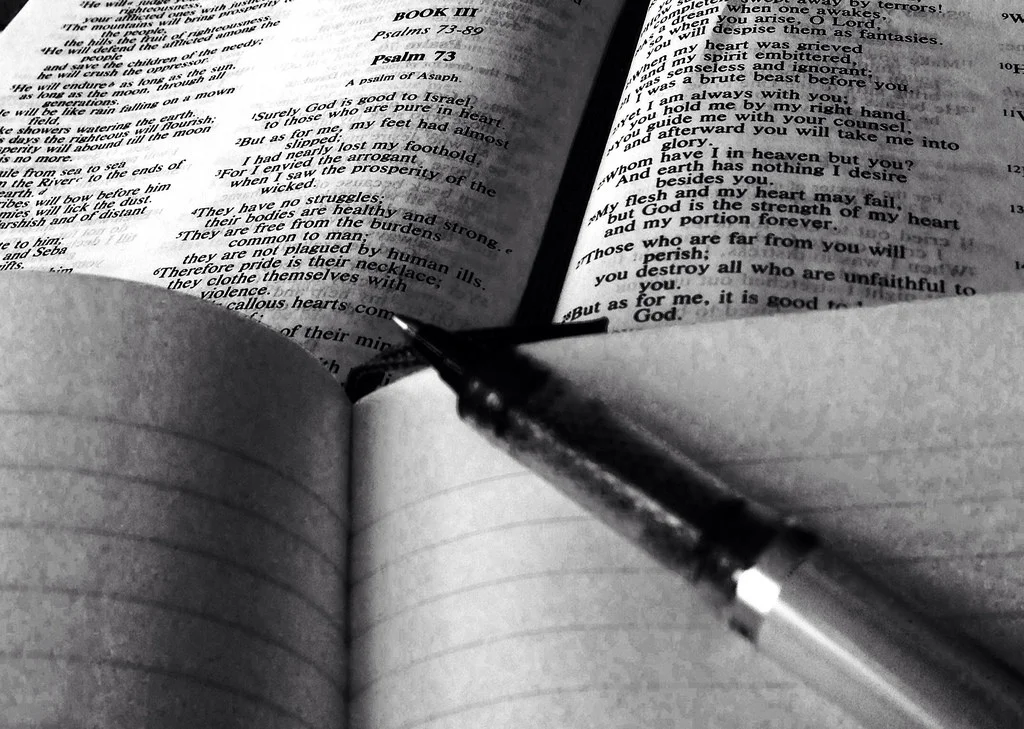 He will judge
your afflicted ones with justice.
³The mountains will bring prosperity to
the people,
the hills the fruit of righteousness.
⁴He will defend the afflicted among the
people
and save the children of the needy;
he will crush the oppressor.
⁵He will endure as long as the sun,
as long as the moon, through all
generations.
will be like rain falling on a mown
field,
showers watering the earth.
days the righteous will flourish;
will abound till the moon
is no more.
from sea to sea
the River to the ends of
earth.
will bow before him
will lick the dust.
and of distant
to him;
and Seba
him
BOOK III
Psalms 73-89
Psalm 73
A psalm of Asaph.
¹Surely God is good to Israel,
to those who are pure in heart.
²But as for me, my feet had almost
slipped;
I had nearly lost my foothold.
³For I envied the arrogant
when I saw the prosperity of the
wicked.
⁴They have no struggles;
their bodies are healthy and strong.
⁵They are free from the burdens
common to man;
they are not plagued by human ills.
⁶Therefore pride is their necklace;
they clothe themselves with
violence.
callous hearts com
of their min
swept away by terrors!
a dream when one awakes,
when you arise, O Lord,
you will despise them as fantasies.
When my heart was grieved
and my spirit embittered,
I was senseless and ignorant;
I was a brute beast before you.
Yet I am always with you;
you hold me by my right hand.
You guide me with your counsel,
and afterward you will take me into
glory.
Whom have I in heaven but you?
And earth has nothing I desire
besides you.
My flesh and my heart may fail,
but God is the strength of my heart
and my portion forever.
²⁷Those who are far from you will
perish;
you destroy all who are unfaithful to
you.
²⁸But as for me, it is good to
God.